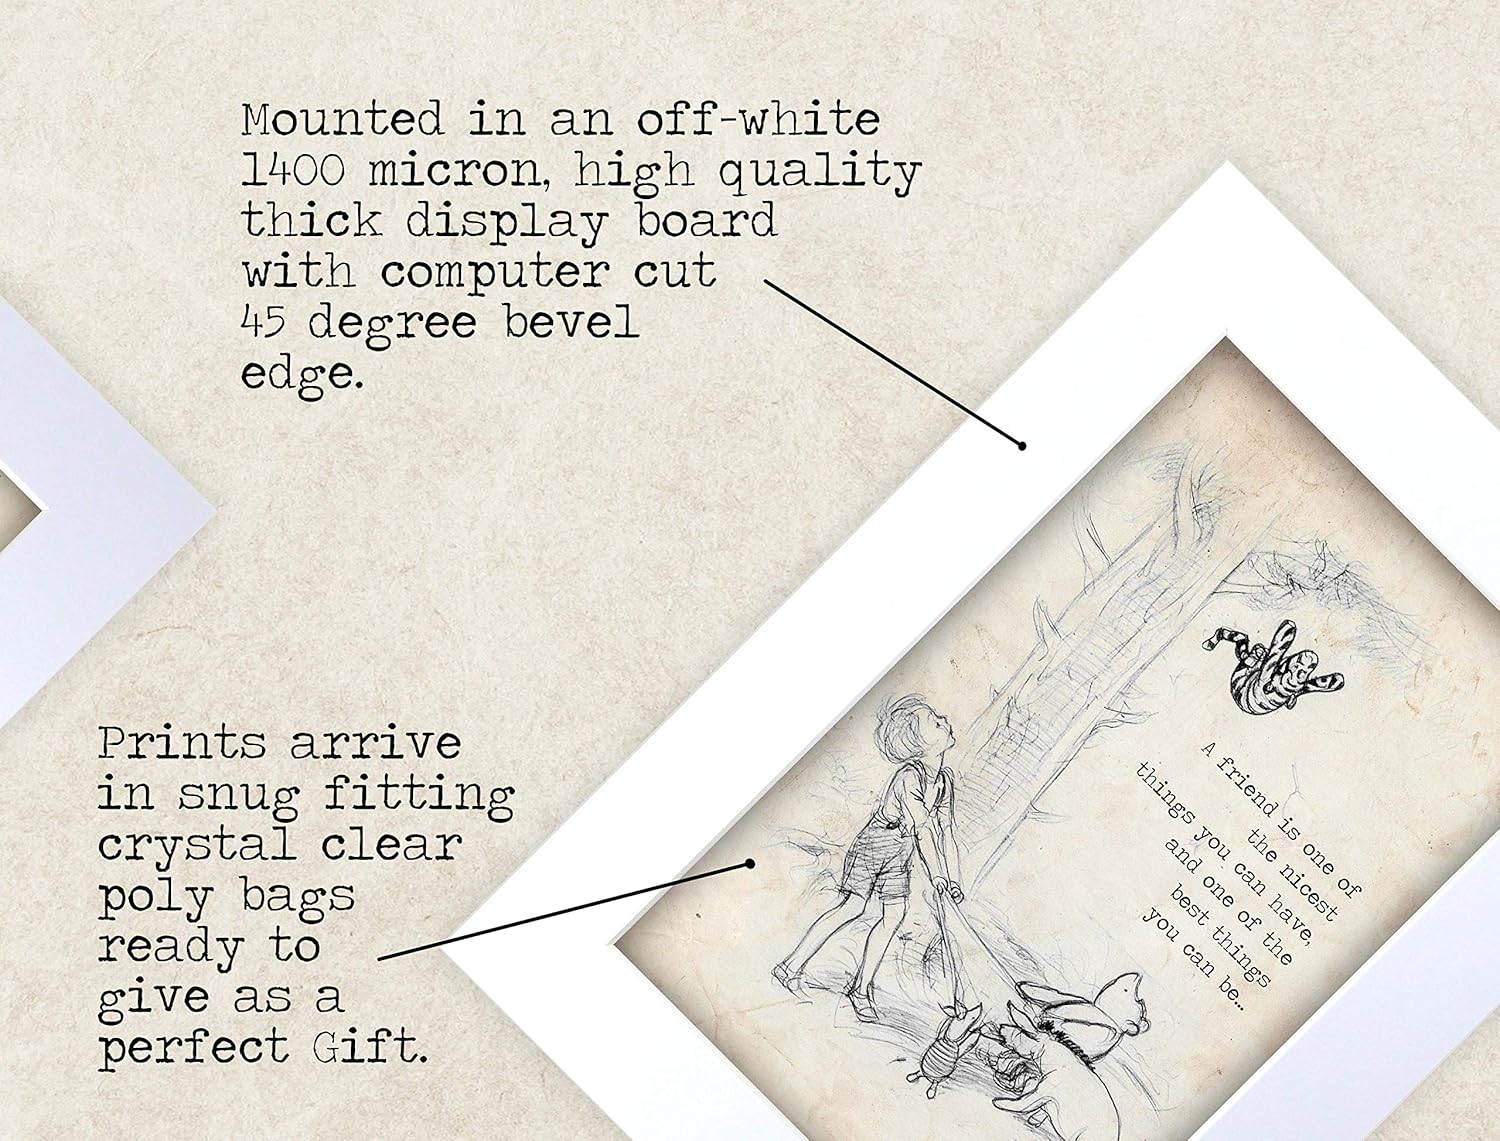 Mounted in an off-white
1400 micron, high quality
thick display board
with computer cut
45 degree bevel
edge.
Prints arrive
in snug fitting
crystal clear
poly bags
ready to
give as a
perfect Gift.
A friend is one of
the nicest
things you can have,
and one of the
best things
you can be...